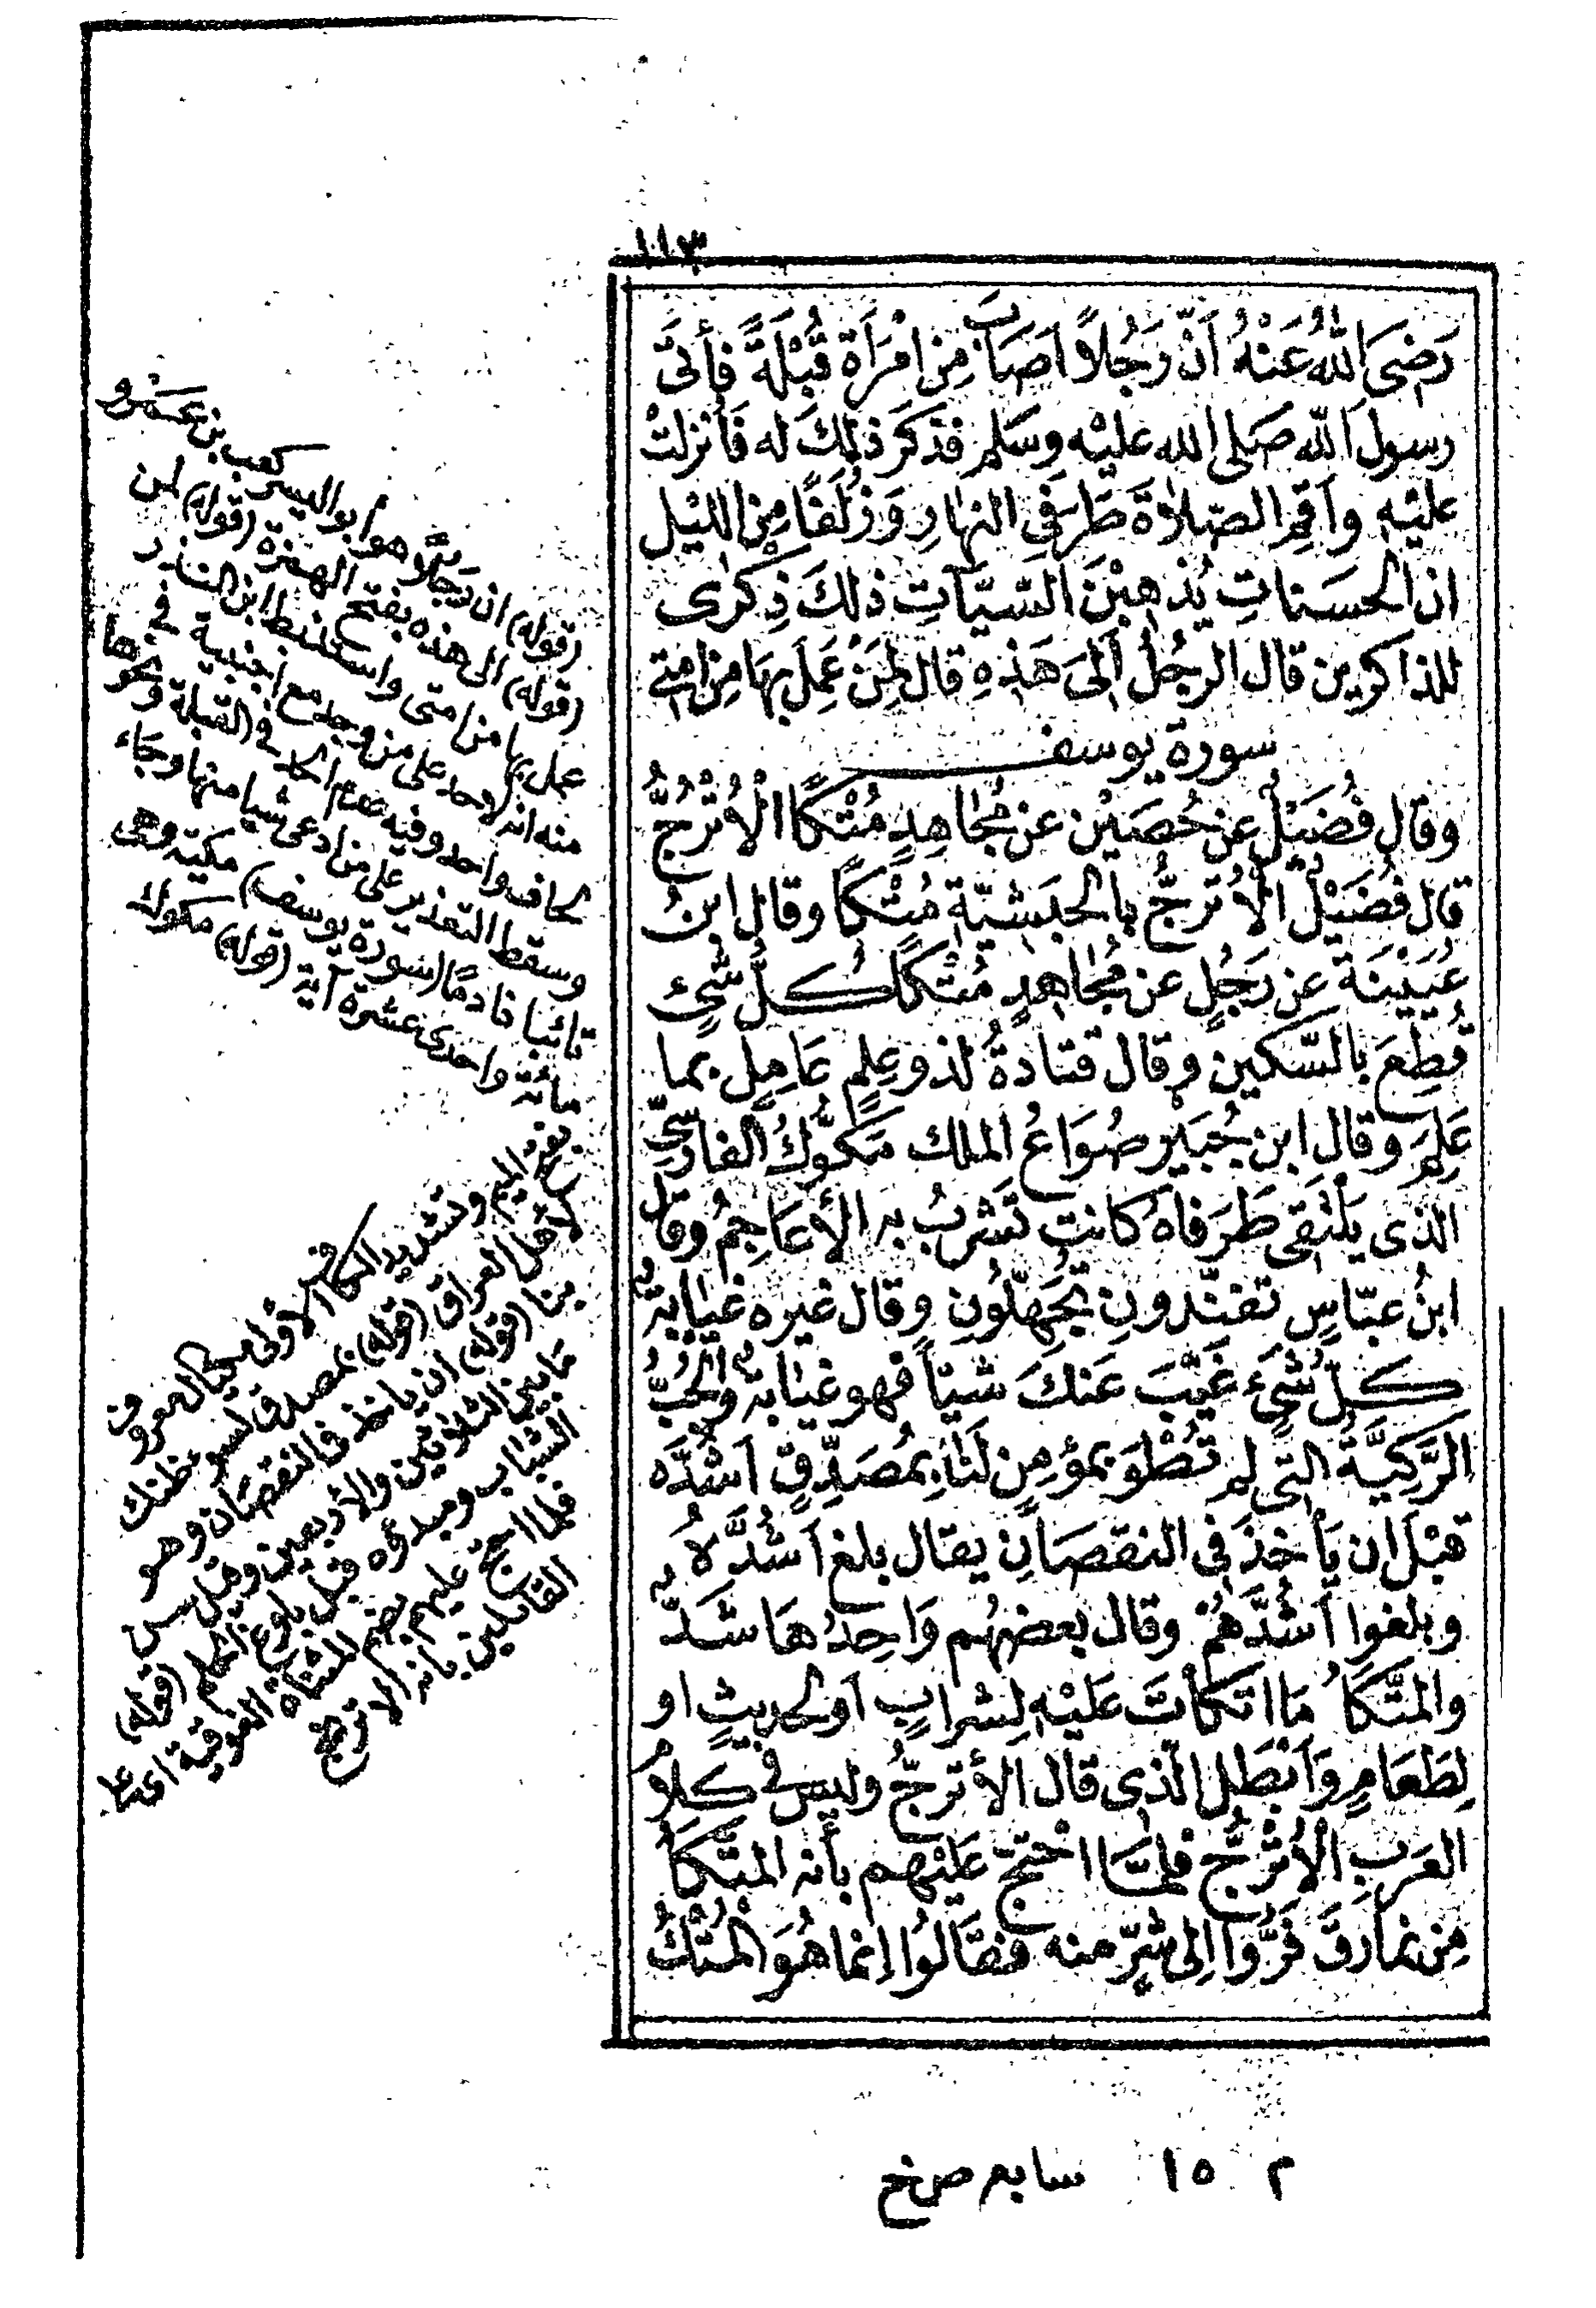 ١١٣
رَضِىَ اللّٰهُ عَنْهُ اَنَّ رَجُلاً اَصَابَ مِنِ امْرَأَة قُبْلَةً فأَتَى
رسولَ اللّه صَلى الله عليْه وسَلم فذكَرَ ذٰلِكَ له فَأُنْزِلتْ
عليْه وأَقِمِ الصّلاٰةَ طَرَفَىِ النهٰارِ وَزُلَفًا مِنَ الليْل
ان الحسَناتِ يُذْهِبْنَ السَّيّآتِ ذلكَ ذِكْرٰى
للذاكرين قال الرجُلُ اَلِىَ هَذِهِ قال لِمَنْ عَمِلَ بِهَا مِنْ امتى
سورة يوسف
وقال فُضَيْلٌ عن حُصَيْن عن مُجٰاهِدٍ مُتْكًا الْاُتْرُجُّ
قال فُضَيْلٌ الْاُتْرجُّ بالحَبَشيّةِ مُتْكًا وقال ابنُ
عُيَيْنَةَ عن رَجُلٍ عن مُجٰاهدٍ مُتْكًا كُلُّ شَىْءٍ
قُطِعَ بالسّكين وقال قتادةُ لذو عِلمٍ عَامِلٌ بما
عَلِمَ وقال ابن جُبَيْر صُوَاعُ الملك مَكّوُكُ الفارسِىِّ
الذى يَلْتَقِى طَرَفاهُ كانت تَشربُ به الأعَاجِمُ وقال
ابنُ عبّاسٍ تفنّدونِ تُجَهِّلُونِ وقال غيره غيَابة
كلُّ شَىْءٍ غَيَّبَ عَنكَ شيأ فهو غيَابة والجُبُّ
الرَّكِيَّةُ التى لم تُطْوَ بمؤمِن لَنَا بِمُصَدِّقٍ اَشُدَّه
قبْل ان يَأخذَ فى النقصَانِ يقال بلغ اَشُدَّهُ
وبلغوا اَشُدَّهُمْ وقال بعضهُم وَاحِدُهَا شَدٌّ
والمتَّكَأُ مَا اتّكأتَ عَليْه لِشرابٍ اَو لحديثٍ او
لِطَعَامٍ وَاَبْطَلَ الّذى قال الأترجُّ وليس فى كلامِ
العَربِ الْاُتْرُجُّ فلمّا احْتجّ عَليْهم بأنه المتَّكَأُ
مِن نمارقَ فَرُّوا الِى شرٍّ منه فقالُوا إنما هُوَ المُتْكُ
(قوله) ان رجلًا هو ابو اليسر كعب بن عمرو
(قوله) الى هذه بفتح الهمزة (قوله) لمن
عمل بها من امتى واستنبط ابن المنذر
منه انه لاحد على من وجد مع اجنبية فى
لحاف واحد وفيه عدم الحد فى القبلة ونحوها
وسقط التعذير على من ادعى شيا منها وجاء
تائبا نادمًا (سورة يوسف) مكيّة وهى
مائة واحدى عشرة آية (قوله) مكوك
بفتح الميم وتشديد الكاف الاولى مكيال معروف
لاهل العراق (قوله) بمصدق لسو ظنك
بنا (قوله) ان ياخذ فى النقصان وهو
مابين الثلاثين والاربعين وقيل سن
الشباب ومبدؤه قبل بلوغ الحلم (قوله)
فلما احتج عليهم بضم المثناة الفوقية اى على
القائلين بانه الاترج
م ١٥ سابع ص خ